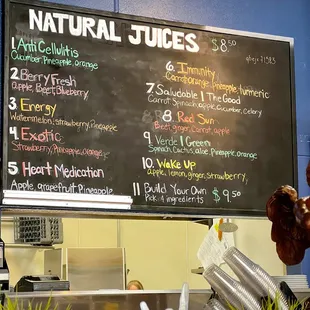 NATURAL JUICES $8.50
1 Anti Cellulitis
Cucumber, Pineapple, orange
2 Berry Fresh
Apple, Beet, Blueberry
3 Energy
Watermelon, Strawberry, pineapple
4 Exotic
Strawberry, Pineapple, orange
5 Heart Medication
Apple, grapefruit, Pineapple
6. Immunity
Carrot, orange, pineapple, turmeric
7 Saludable | The Good
Carrot, Spinach, apple, cucumber, celery
8. Red Sun
Beet, ginger, Carrot, apple
9 Verde | Green
Spinach, Cactus, aloe, Pineapple, orange
10. Wake Up
apple, lemon, ginger, Strawberry,
11 Build Your Own $9.50
Pick 4 ingredients